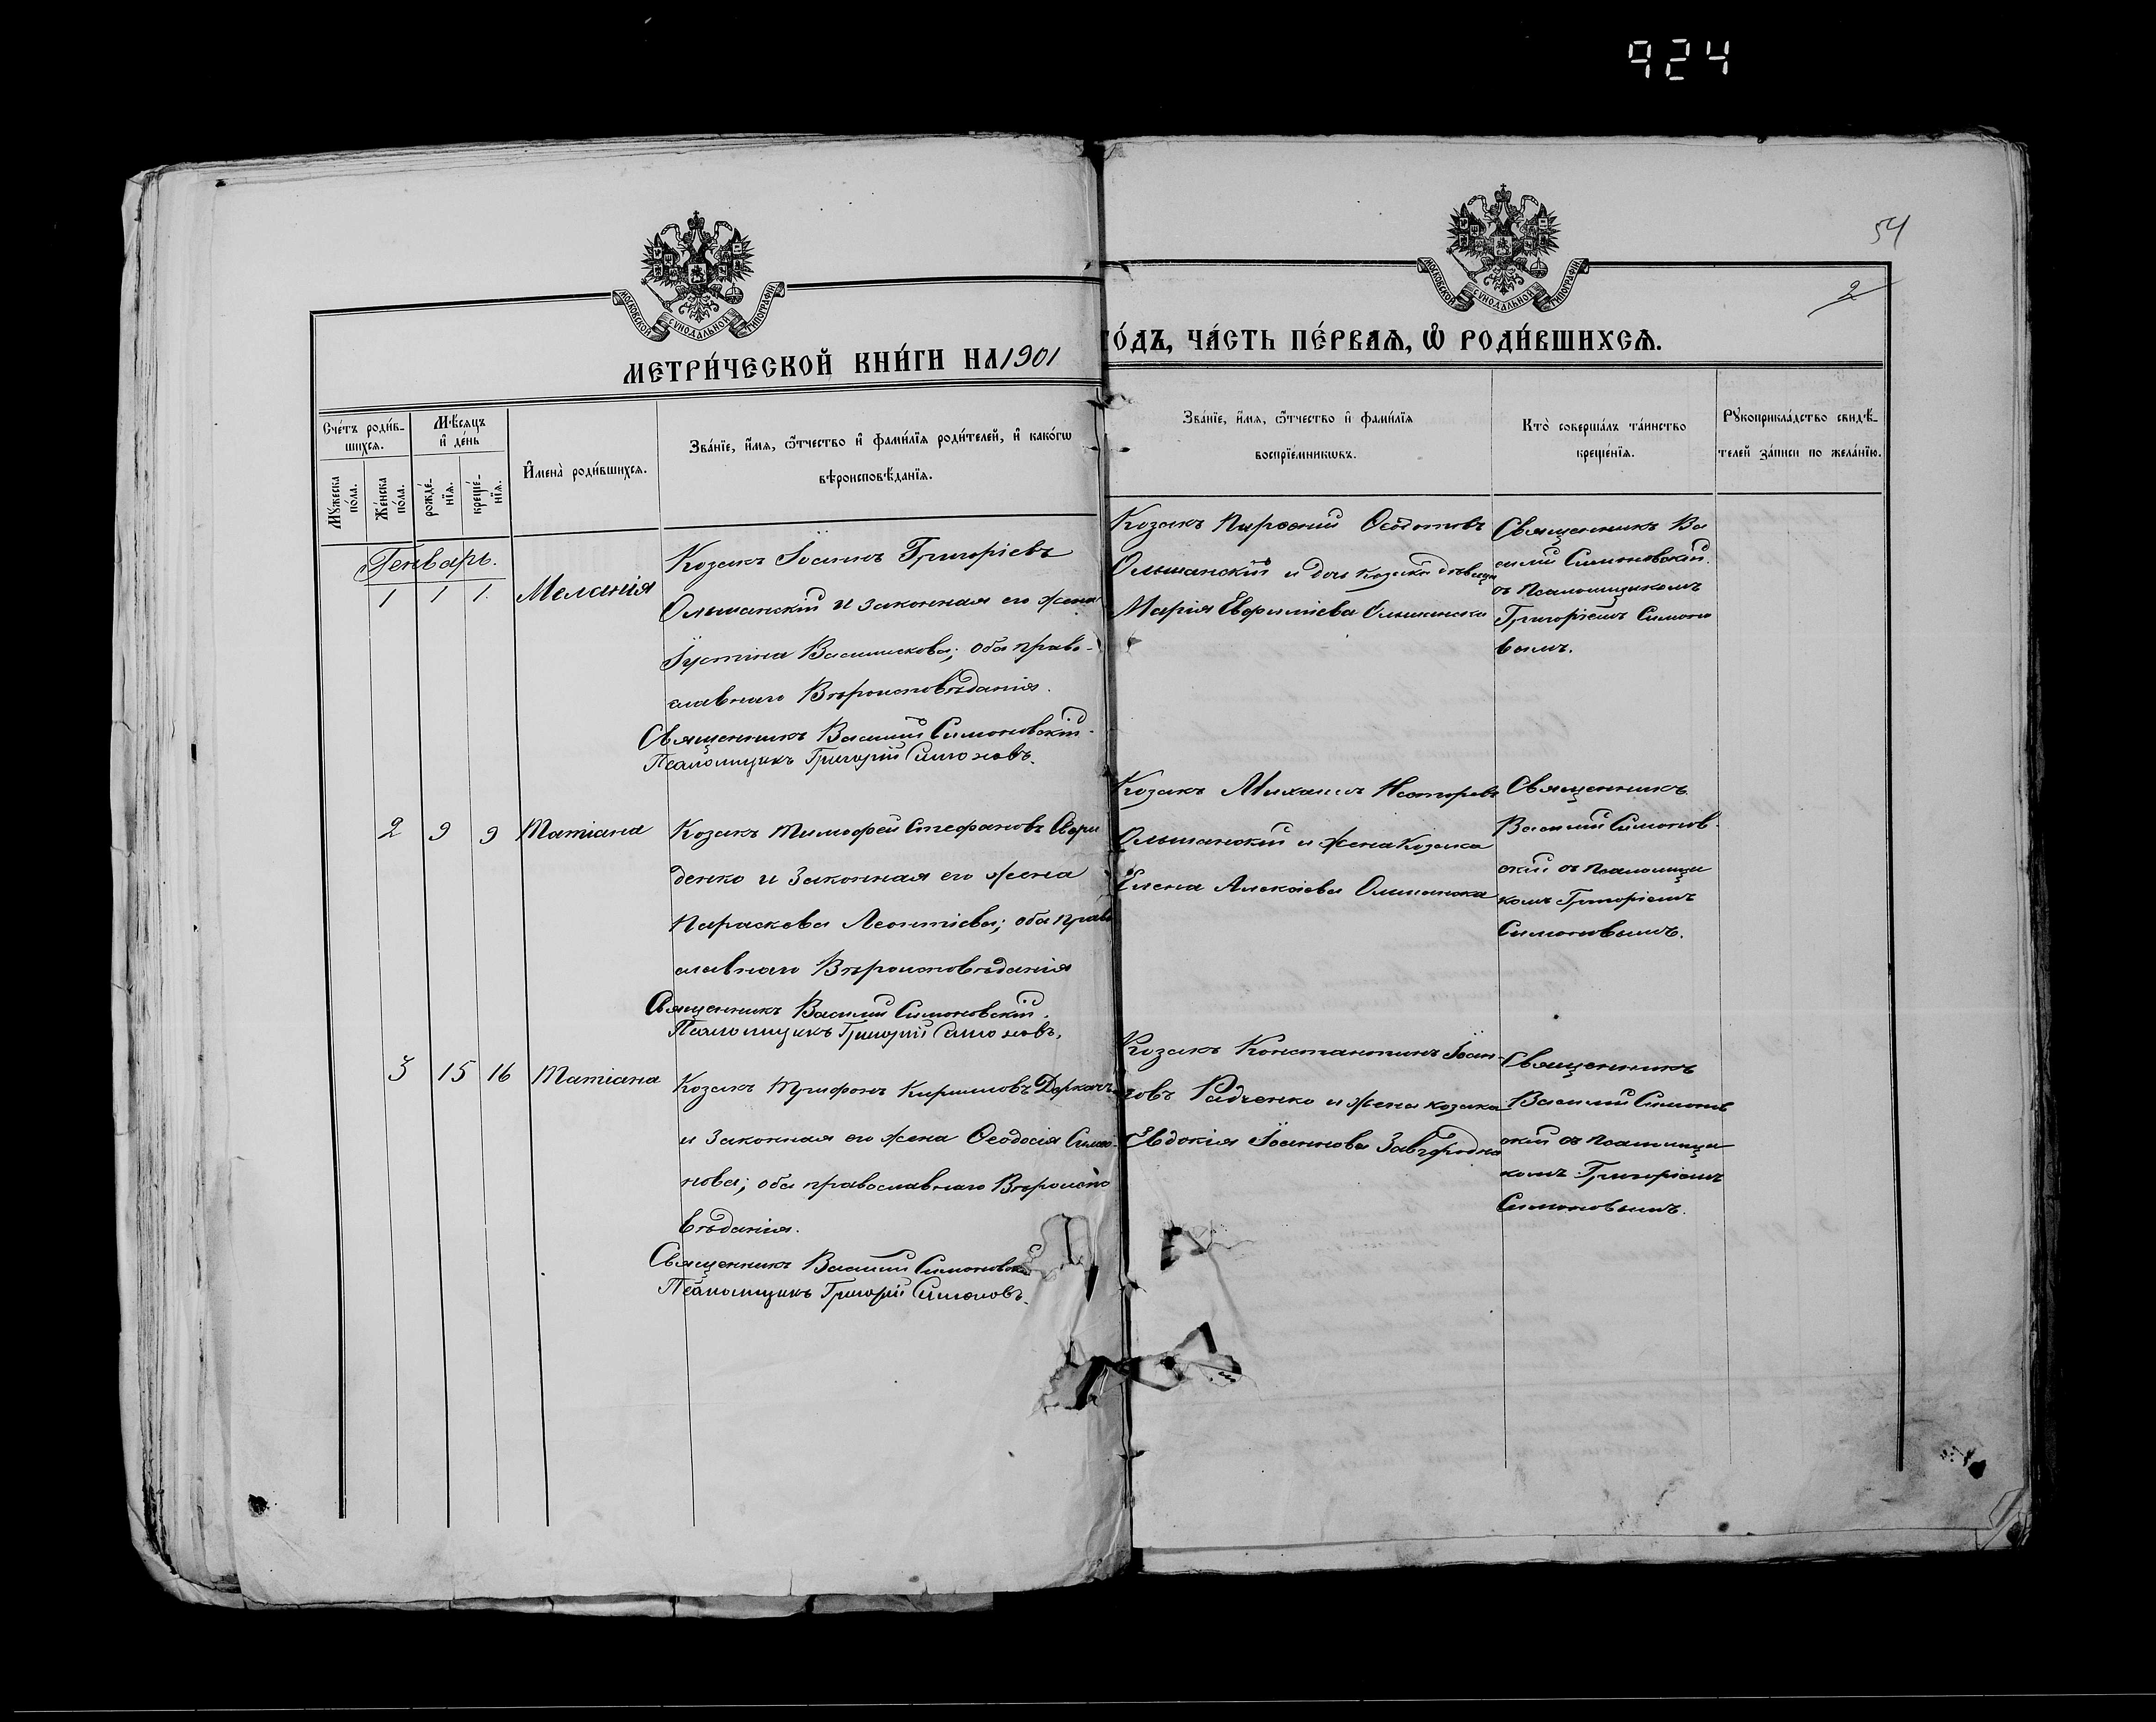 924
54
2
МОСКОВСКОЙ СУНОДАЛЬНОЙ ТИПОГРАФІИ
МОСКОВСКОЙ СУНОДАЛЬНОЙ ТИПОГРАФІИ
МЕТРИ́ЧЕСКОЙ КНИ́ГИ НА 1901
ГО́ДЪ, ЧА́СТЬ ПЕ́РВАѦ, Ѡ҆ РОДИ́ВШИХСѦ.
Сче́тъ роди́в-
шихсѧ.
Мꙋ́жеска
по́ла.
Же́нска
по́ла.
Мѣ́сѧцъ
и҆ де́нь
рожде́-
нїѧ.
креще́-
нїѧ.
И҆мена̀ роди́вшихсѧ.
Зва́нїе, и҆́мѧ, ѻ҆́тчество и҆ фами́лїѧ роди́телей, и҆ како́гѡ
вѣроисповѣ́данїѧ.
Зва́нїе, и҆́мѧ, ѻ҆́тчество и҆ фами́лїѧ
воспрїе́мникѡвъ.
Кто̀ соверша́лъ та́инство
креще́нїѧ.
Рꙋкоприкла́дство свидѣ́-
телей за́писи по жела́нїю.
Генварь.
1 1 1. Меланія
Козакъ Іоаннъ Григоріевъ
Ольшанскій и законная его жена
Іустина Васильева; оба право-
славнаго Вѣроисповѣданія.
Священникъ Василій Симоновскій.
Псаломщикъ Григорій Симоновъ.
Козакъ Парѳеній Ѳеодотовъ
Ольшанскій и дочь козака дѣвица
Марія Евфиміева Ольшанска
Священникъ Ва
силій Симоновскій
съ Псаломщикомъ
Григоріемъ Симоно
вымъ.
2 9 9 Татіана
Козакъ Тимоѳей Стефановъ Свири
денко и законная его жена
Параскева Леонтіева; оба право
славнаго Вѣроисповѣданія
Священникъ Василій Симоновскій.
Псаломщикъ Григорій Симоновъ.
Козакъ Михаилъ Несторовъ
Ольшанскій и жена Козака
Елена Алексіева Ольшанска
Священникъ
Василій Симонов
скій съ псаломщи
комъ Григоріемъ
Симоновымъ.
3 15 16 Татіана
Козакъ Трифонъ Кирилловъ Деркачъ
и законная его жена Ѳеодосія Симо
нова; оба православнаго Вѣроиспо
вѣданія.
Священникъ Василій Симоновскій
Псаломщикъ Григорій Симоновъ.
Козакъ Константинъ Іоан-
новъ Радченко и жена козака
Евдокія Іоаннова Завгородня
Священникъ
Василій Симонов
скій съ псаломщи
комъ Григоріемъ
Симоновымъ.